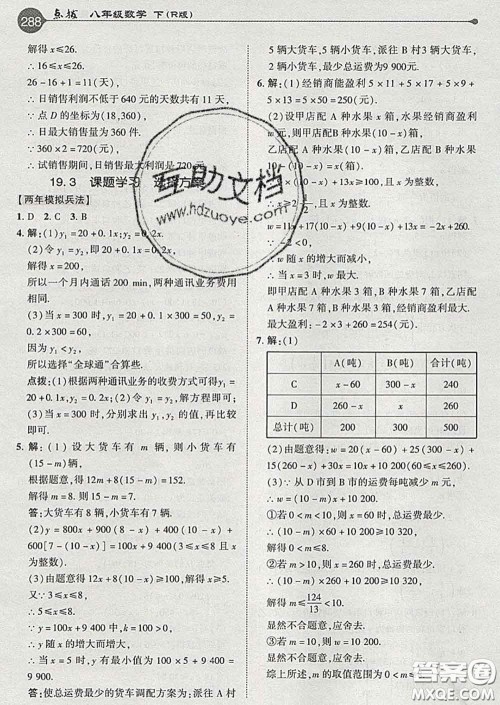 288 点拨 八年级数学 下(R版)
解得 x≤26.
∴ 16≤x≤26.
26-16+1=11(天),
∴ 日销售利润不低于 640 元的天数共有 11 天,
∵ 点 D 的坐标为(18,360),
∴ 日最大销售量为 360 件.
∵ 360×2=720(元),
∴ 试销售期间,日销售最大利润是 720 元.
19.3 课题学习 选择方案
【两年模拟兵法】
1. D 2. C 3. B
4. 解:(1) y₁=20+0.1x;y₂=0.2x.
(2)令 y₁=y₂,即 20+0.1x=0.2x.
解得 x=200.
所以一个月内通话 200 min,两种通讯业务费用
相同.
(3)当 x=300 时,y₁=20+0.1x=50,y₂=
0.2x=0.2×300=60.
因为 y₁<y₂,
所以选择"全球通"合算些.
点拨:(1)根据两种通讯业务的收费方式可得y₁
=20+0.1x,y₂=0.2x.(2)令 y₁=y₂,解方程即可;
(3)令 x=300,分别求出 y₁,y₂ 的值,再比较
即可.
5. 解:(1)设大货车有 m 辆,则小货车有
(15-m)辆,
根据题意得 12m+8(15-m)=152.
解得 m=8.
答:大货车有 8 辆,小货车有 7 辆.
(2) y=800x+900(8-x)+400(10-x)+
600[7-(10-x)]=100x+9 400(3≤x≤8 且 x
为整数).
(3)由题意得 12x+8(10-x)≥100,解得 x≥5.
又 ∵ 3≤x≤8,
∴ 5≤x≤8.
∵ y=100x+9 400,100>0,
∴ y 随 x 的增大而增大,
∴ 当 x=5 时,y 有最小值,为 100×5+9 400
=9 900.
答:使总运费最少的货车调配方案为:派往 A 村
5 辆大货车,5 辆小货车,派往 B 村3 辆大货车,
2 辆小货车,最少总运费为 9 900 元.
6. 解:(1)经销商能盈利 5×11+5×9+
5×13=5×50=250(元).
(2)设甲店配 A 种水果 x 箱,
(10-x)≥100,解得
且 x 为整数.
w=11x+17(10-x)+9(10-x)+
∵ -2<0,
∴ w 随 x 的增大而减小,
∴ 当 x=3 时,w 值最大.
即甲店配 A 种水果 3 箱,B 种水果 7 箱,乙店配
A 种水果 7 箱,B 种水果 3 箱.
最大盈利:-2×3+260=254(元).
7. 解:(1)
A(吨) B(吨) 合计(吨)
C x-60 300-x 240
D 260-x x 260
总计(吨) 200 300 500
(2)由题意得:w=20(x-60)+25(300-x)
+15(260-x)+30x=10x+10 200,
∴ w=10x+10 200(60≤x≤260).
(3)∵ 从 D 市到 B 市的运费每吨减少 m 元,
∴ w=(10-m)x+10 200.
①若 0<m<10,
(10-m)×60+10 200≥10 320,
解得 0<m≤8.
②若 m>10,
(10-m)×260+10 200≥10 320,
解得 m≤124/13<10.
显然不合题意,应舍去.
③若 m=10,则 w=10 200<10 320.
显然不合题意,应舍去.
综上所述,m 的取值范围为 0<m≤8.
互助文档
www.hdzuoye.com
答案圈
MXQE.COM